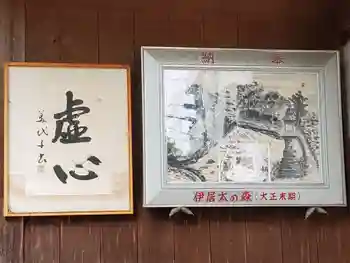 虚心
奉納
伊居太の森(大正末期)